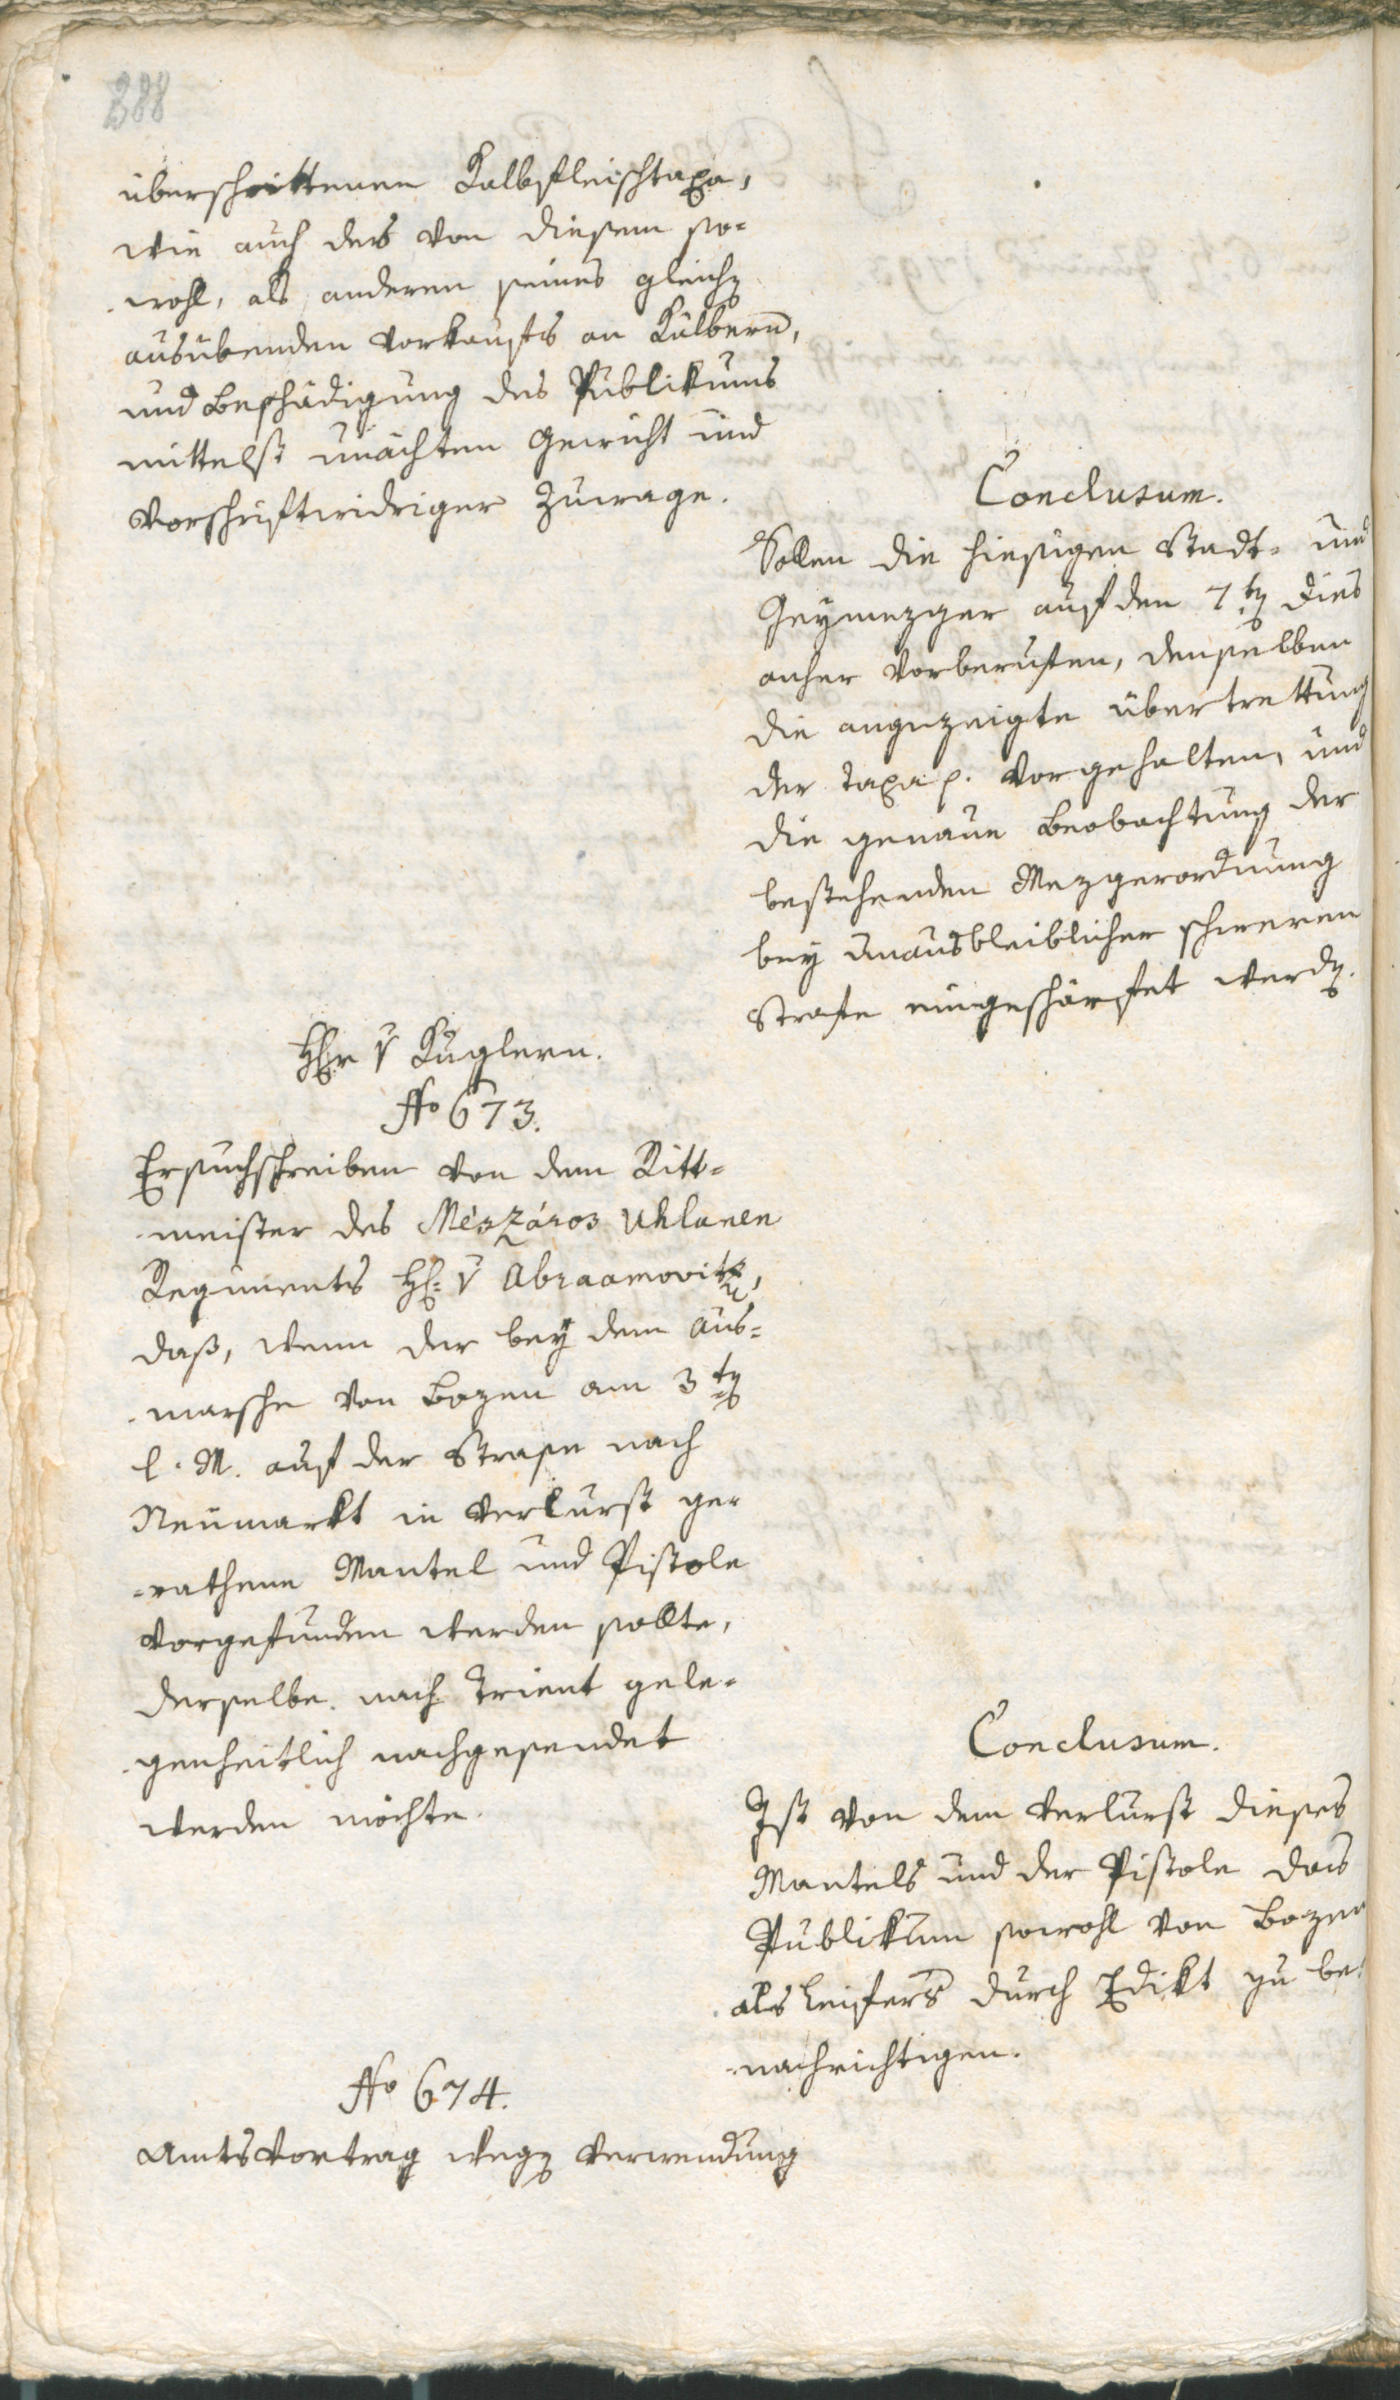 388
überschrittenen Kalbfleischtaxa,
wie auch des von diesem so-
wohl, als anderen seines gleichen
ausübenden Vorkaufs an Kälbern,
und Beschädigung des Publikums
mittelst unächten Gewicht und
Vorschriftwidriger Zuwage.
Conclusum.
Sollen die hiesigen Stadt- und
Geymezger auf den 7ten dies
anher Vorberuffen, denselben
die angezeigte übertrettung
der Taxa p. Vorgehalten, und
die genaue Beobachtung der
bestehenden Mezgerordnung
bey Unausbleiblicher schweren
Strafe eingeschärfet werden.
Herr v Kuglern.
No 673.
Ersuchschreiben von dem Ritt-
meister des Mészáros Uhlanen
Regiments H: v Abraamovitz,
daß, wenn der bey dem Aus-
marsche von Bozen am 3ten
l. M. auf der Strase nach
Neumarkt in Verlurst ge-
rathene Mantel und Pistole
Vorgefunden werden sollte,
derselbe nach Trient gele-
genheitlich nachgesendet
werden möchte.
Conclusum.
Ist von dem Verlurst dieses
Mantels und der Pistole das
Publikum sowohl von Bozen
als Leifers durch Edikt zu be-
nachrichtigen.
No 674.
Amts Vortrag wegen Verwendung